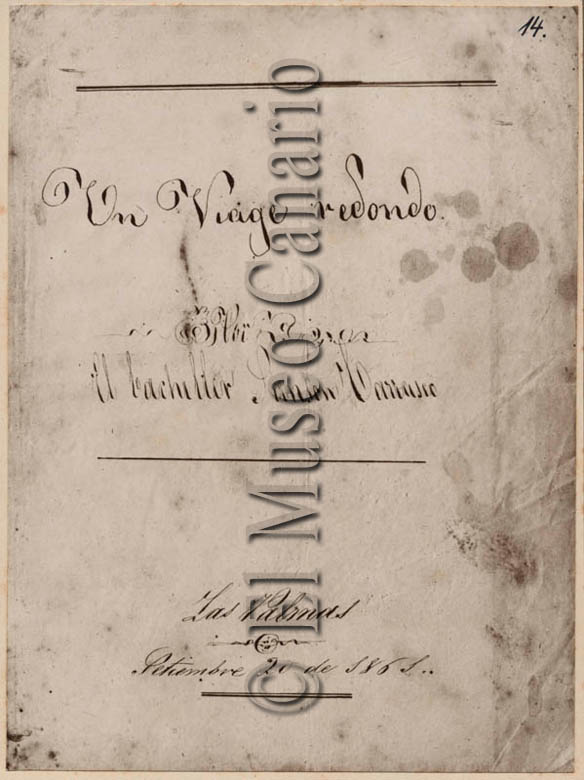 14.
Un Viage redondo.
Por
El bachiller Sansón Carrasco
Las Palmas
Setiembre 20 de 1861.
© El Museo Canario